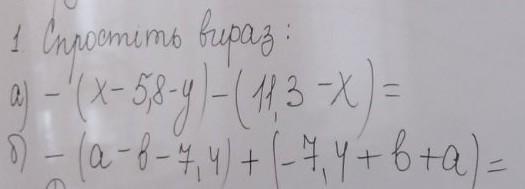 1. Спростіть вираз:
а) - (x - 5,8 - y) - (11,3 - x) =
б) - (a - b - 7,4) + (-7,4 + b + a) =